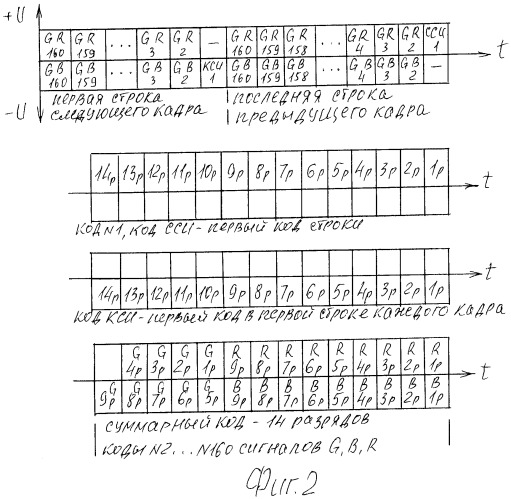 +U
GR 160 GR 159 ... GR 3 GR 2 — GR 160 GR 159 GR 158 ... GR 4 GR 3 GR 2 ССИ 1
t
GB 160 GB 159 ... GB 3 GB 2 КСИ 1 GB 160 GB 159 GB 158 GB 4 GB 3 GB 2 —
-U
первая строка следующего кадра
последняя строка предыдущего кадра
14р 13р 12р 11р 10р 9р 8р 7р 6р 5р 4р 3р 2р 1р
t
код N1, код ССИ - первый код строки
t
14р 13р 12р 11р 10р 9р 8р 7р 6р 5р 4р 3р 2р 1р
код КСИ - первый код в первой строке каждого кадра
G 4р G 3р G 2р G 1р R 9р R 8р R 7р R 6р R 5р R 4р R 3р R 2р R 1р
t
G 9р G 8р G 7р G 6р G 5р B 9р B 8р B 7р B 6р B 5р B 4р B 3р B 2р B 1р
суммарный код - 14 разрядов
коды N2...N160 сигналов G, B, R
Фиг. 2